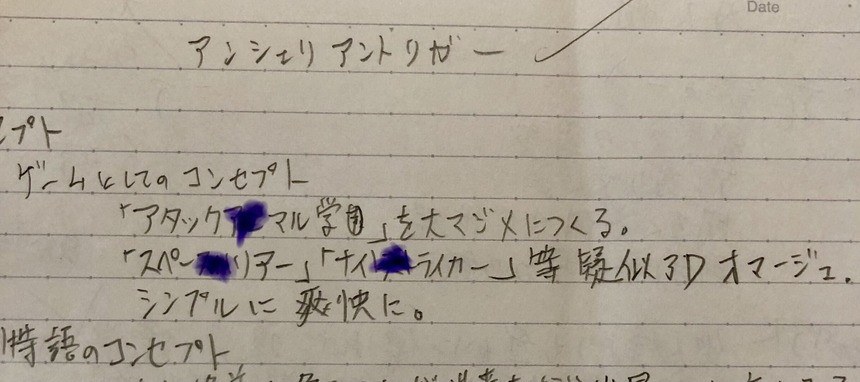 Date
アンシェリアントリガー
プト
ゲームとしてのコンセプト
「アタック マル学園」を大マジメにつくる。
「スペー リアー」「ナイト ライカー」等疑似3Dオマージュ.
シンプルに爽快に。
のコンセプト